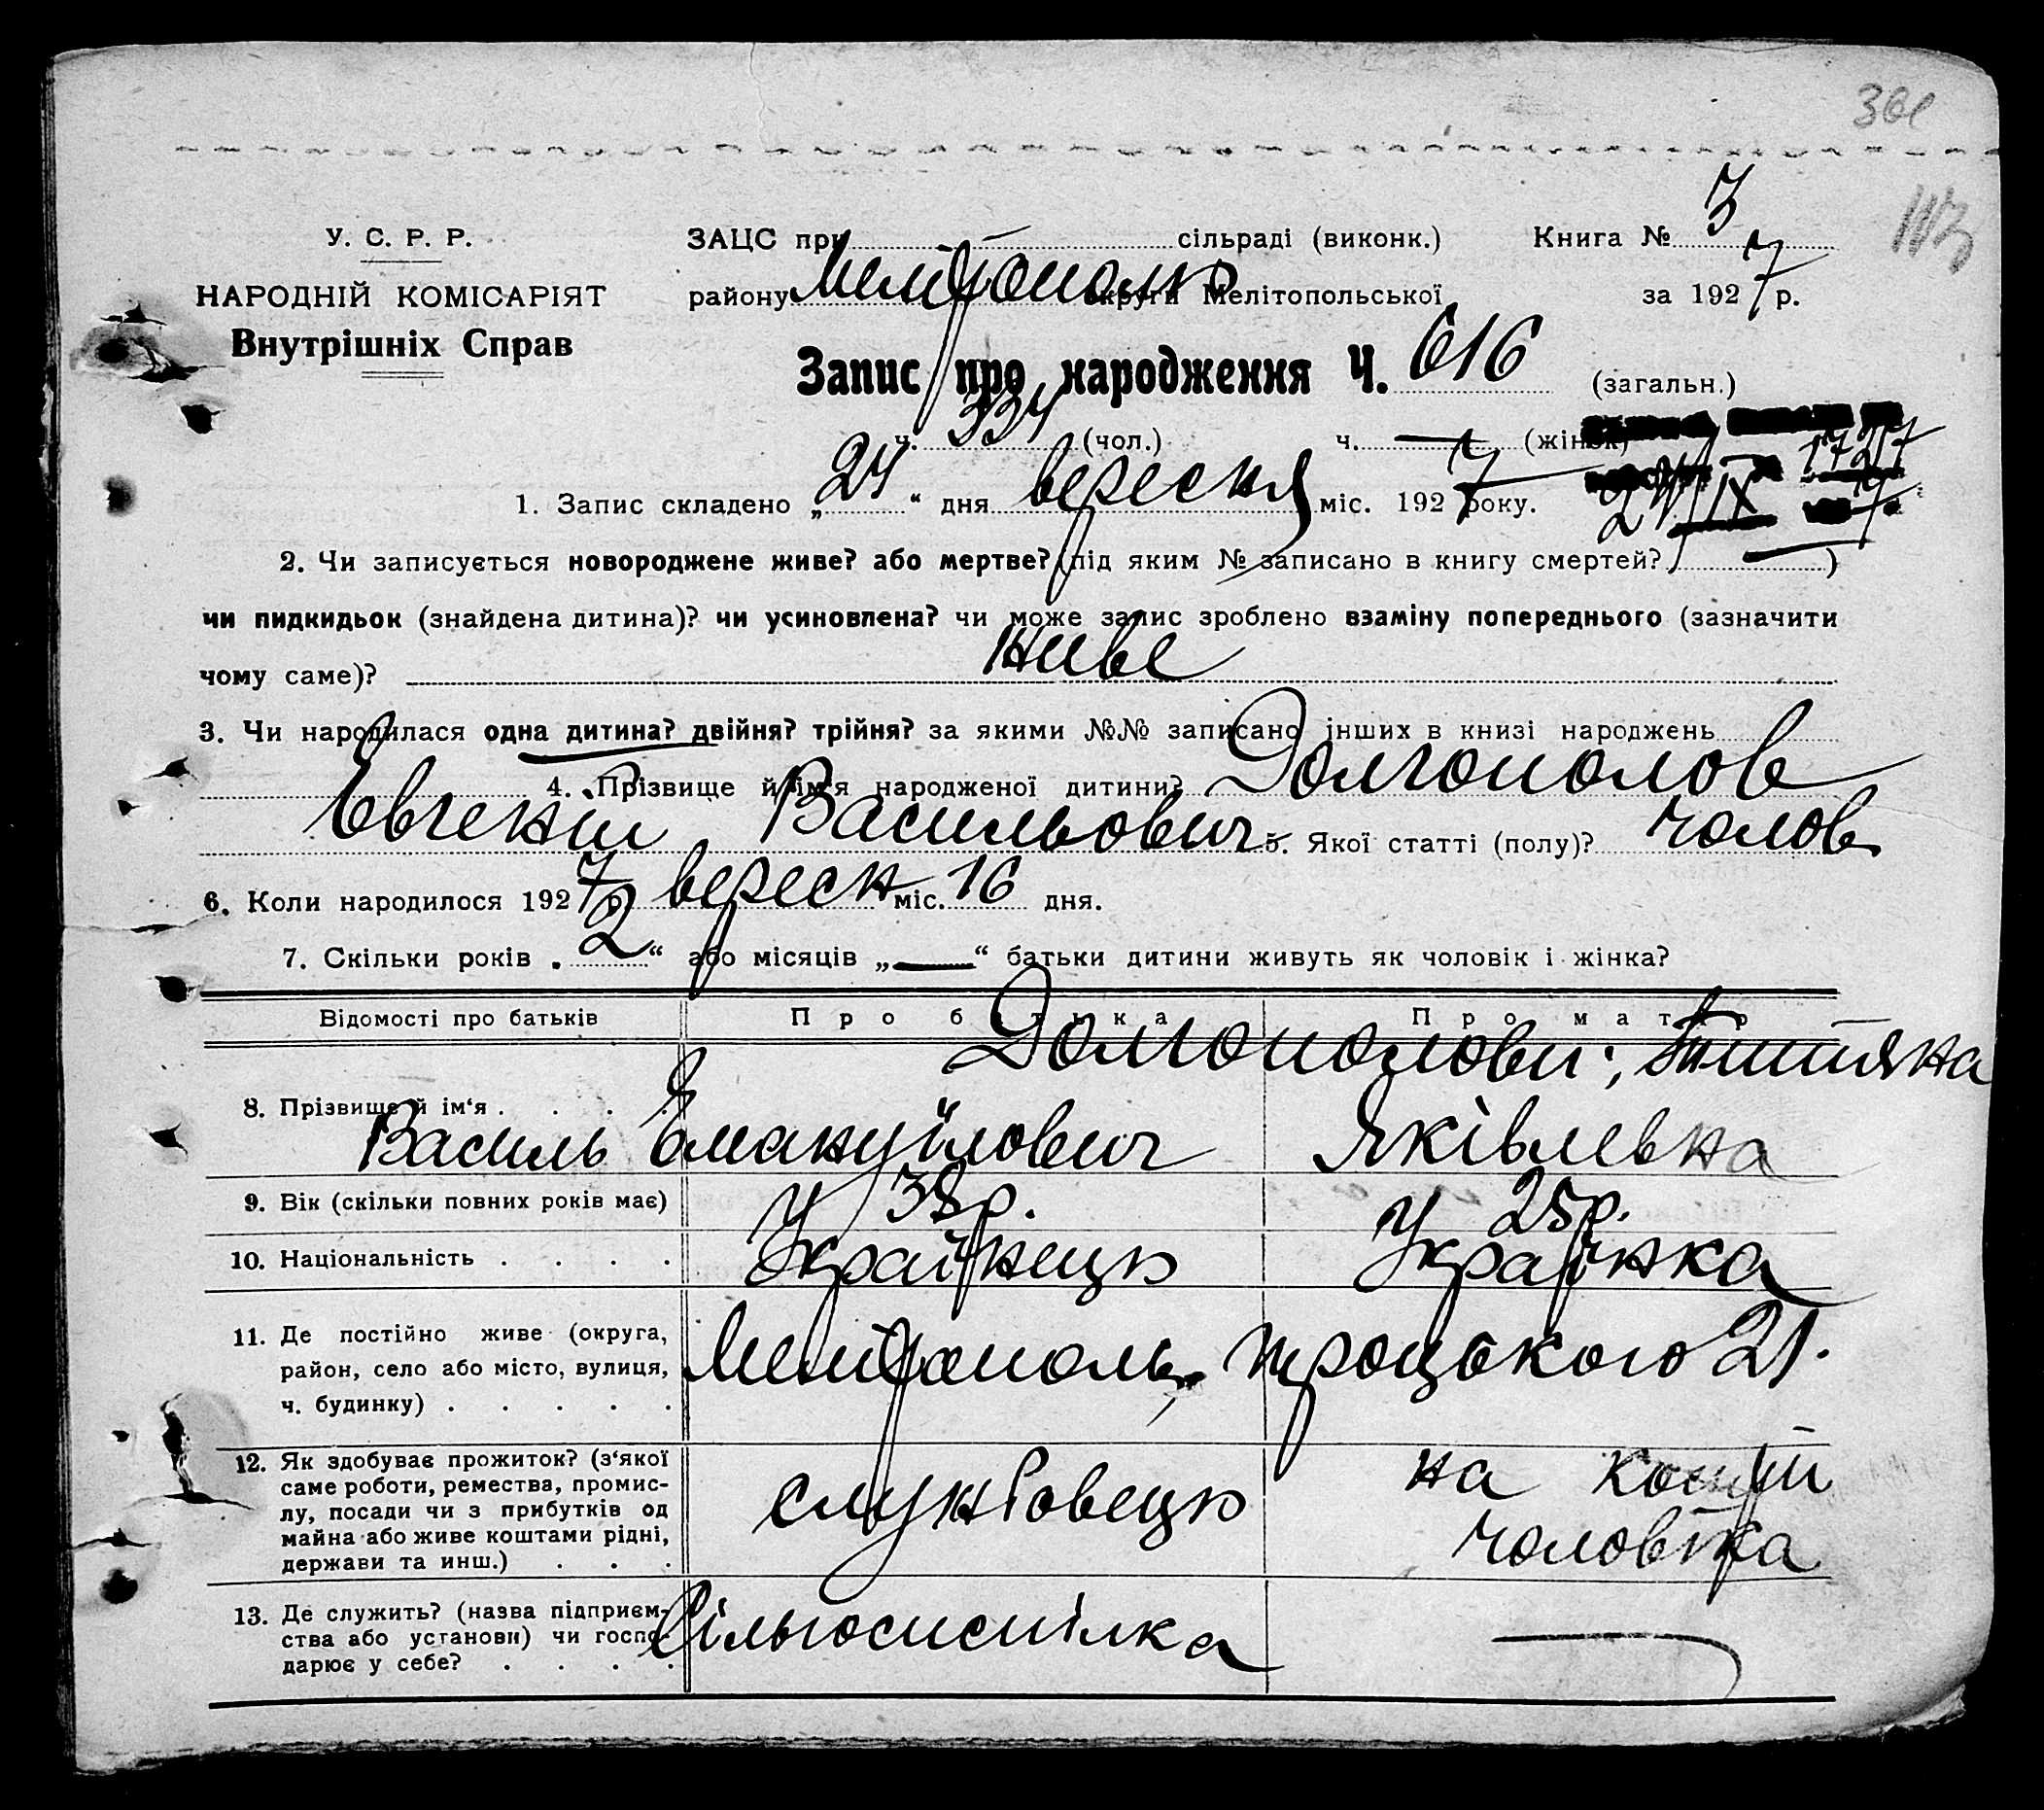 У. С. Р. Р.
НАРОДНІЙ КОМІСАРІЯТ
Внутрішніх Справ
ЗАЦС при сільраді (виконк.) Книга № 3
району Мелітополь округи Мелітопольської за 1927 р.
Запис про народження Ч. 616 (загальн.)
ч. 334 (чол.) ч. — (жінок)
1. Запис складено „24“ дня вересня міс. 1927 року.
2. Чи записується новороджене живе? або мертве? (під яким № записано в книгу смертей? —)
чи пидкидьок (знайдена дитина)? чи усиновлена? чи може запис зроблено взаміну попереднього (зазначити
чому саме)? живе
3. Чи народилася одна дитина? двійня? трійня? за якими №№ записано інших в книзі народжень
4. Прізвище й ім'я народженої дитини? Долгополов
Евгений Васильович 5. Якої статті (полу)? чолов
6. Коли народилося 1927 р. вересн міс. 16 дня.
7. Скільки років „2“ або місяців „—“ батьки дитини живуть як чоловік і жінка?
Відомості про батьків Про батька Про матір
Долгополови;
8. Прізвище й ім'я . . . . Василь Емануїлович Яківлевна
9. Вік (скільки повних років має) 38р. 25р.
10. Національність . . . . Українець Українка
11. Де постійно живе (округа,
район, село або місто, вулиця, Мелітополь, Троцького 21.
ч. будинку) . . . . .
12. Як здобуває прожиток? (з'якої
саме роботи, ремества, промис-
лу, посади чи з прибутків од
майна або живе коштами рідні,
держави та инш.) . . .
службовець
на кошти
чоловіка
13. Де служить? (назва підприєм-
ства або установи) чи госпо-
дарює у себе? . . . .
Сільгоспспілка —